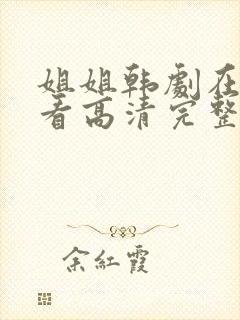 姐姐韩劇在
看高清完整
余紅霞